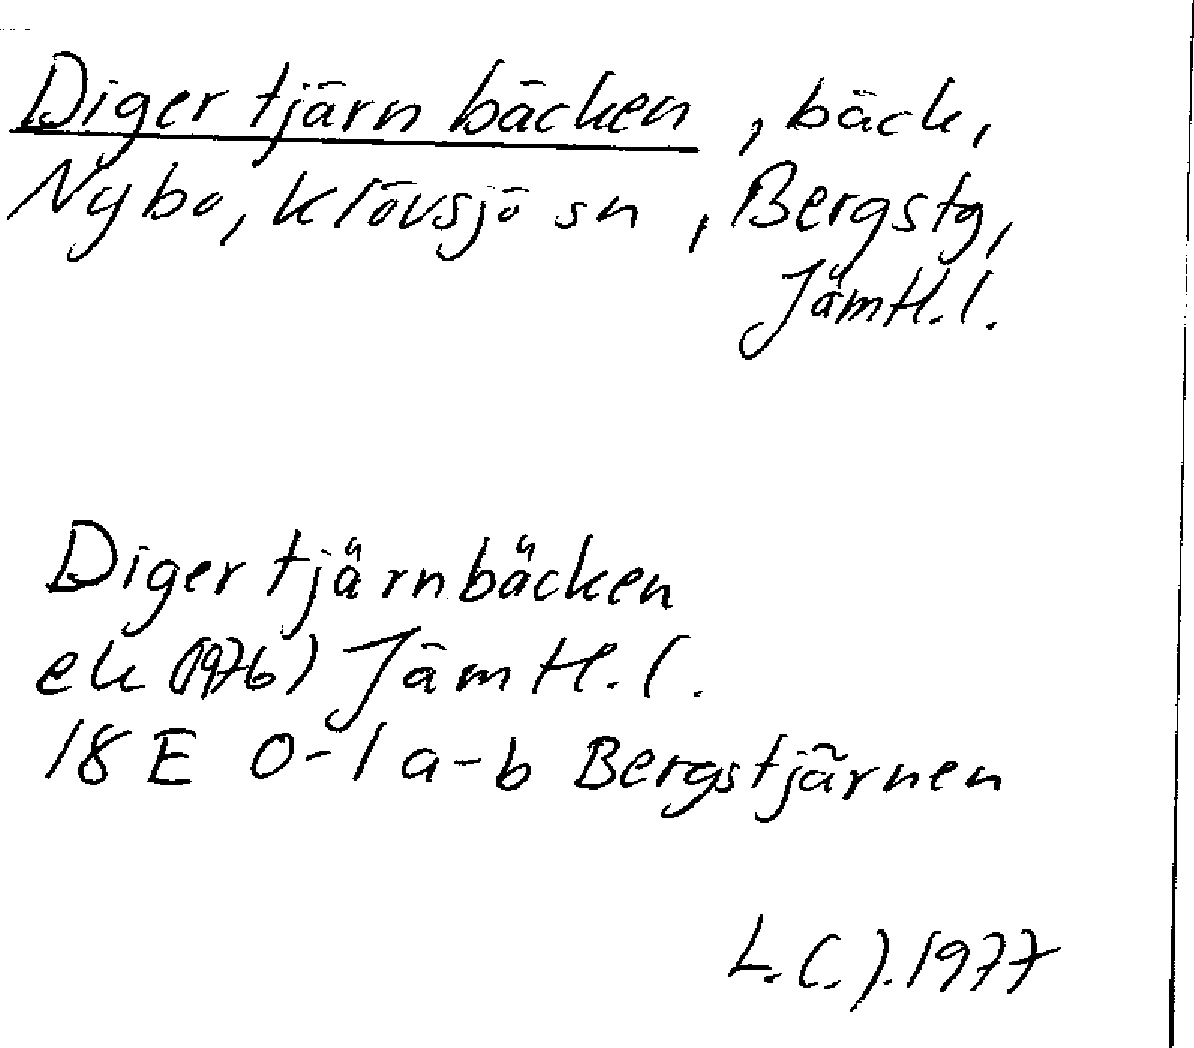 Digertjärnbäcken, bäck,
Nybo, Klövsjö sn, Bergstg,
Jämtl.l.
Digertjärnbäcken
ek (1976) Jämtl.l.
18E 0-1 a-b Bergstjärnen
L.C.J. 1977